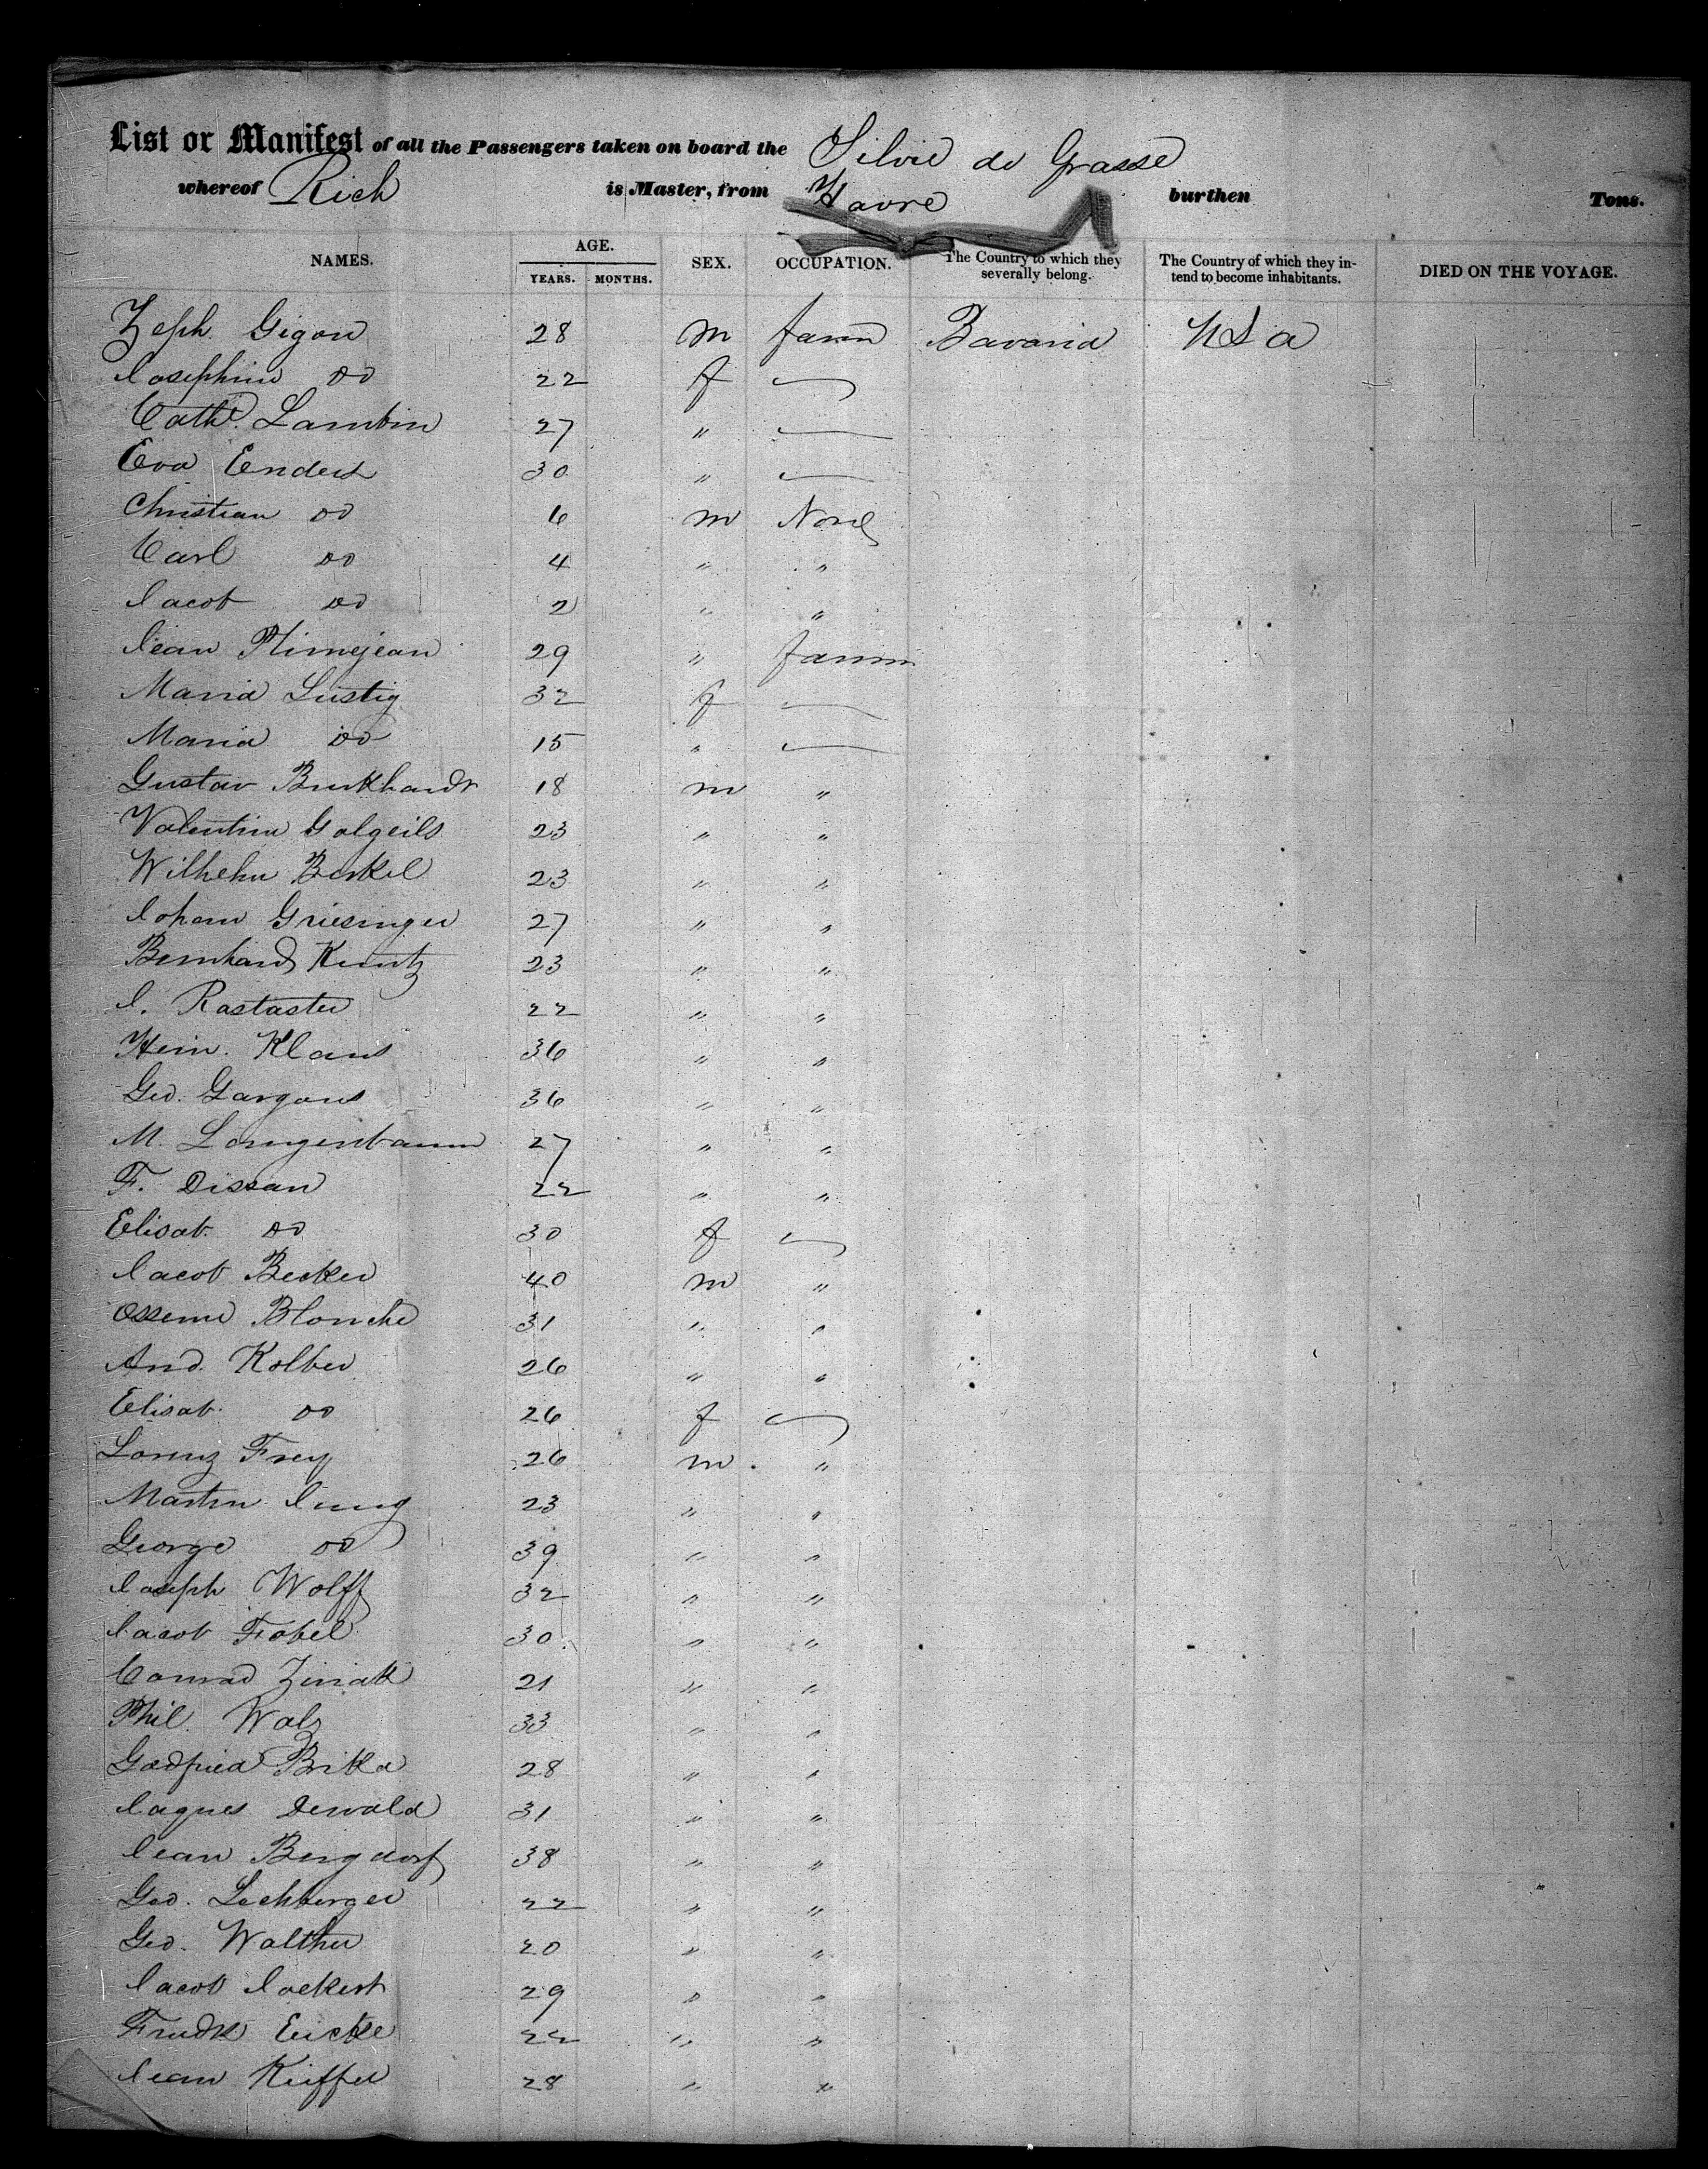 List or Manifest of all the Passengers taken on board the Silvie de Grasse
whereof Rich is Master, from Havre burthen Tons.
NAMES. AGE. YEARS. MONTHS. SEX. OCCUPATION. The Country to which they severally belong. The Country of which they intend to become inhabitants. DIED ON THE VOYAGE.
Zeph. Gigon 28 m farm Bavaria U S a
Josephine do 22 f —
Cath. Lambin 27 " —
Eva Endert 30 " —
Christian do 6 m None
Carl do 4 " "
Jacob do 2 " "
Jean 29 " farmer
Maria Lustig 32 f —
Maria do 15 " —
Gustav Burkhardt 18 m "
Valentin Golgeils 23 " "
Wilhelm Berkel 23 " "
Johann Griesinger 27 " "
Bernhard Kuntz 23 " "
J. Rastaster 22 " "
Hein. Klaus 36 " "
Geo. Gargous 36 " "
M. Langenbaum 27 " "
F. Dissau 22 " "
Elisab. do 30 f —
Jacob Becker 40 m "
Blonche 31 " "
And. Kolber 26 " "
Elisab. do 26 f —
Lorenz Frey 26 m "
Martin Jung 23 " "
George do 39 " "
Joseph Wolff 32 " "
Jacob Fobel 30 " "
Conrad 21 " "
Phil. Walz 33 " "
Godfried Brika 28 " "
Jaques Dewald 31 " "
Jean Bergdorf 38 " "
Geo. Lechberger 22 " "
Geo. Walther 20 " "
Jacob Jockert 29 " "
Fredk Eicke 22 " "
Jean Kieffer 28 " "